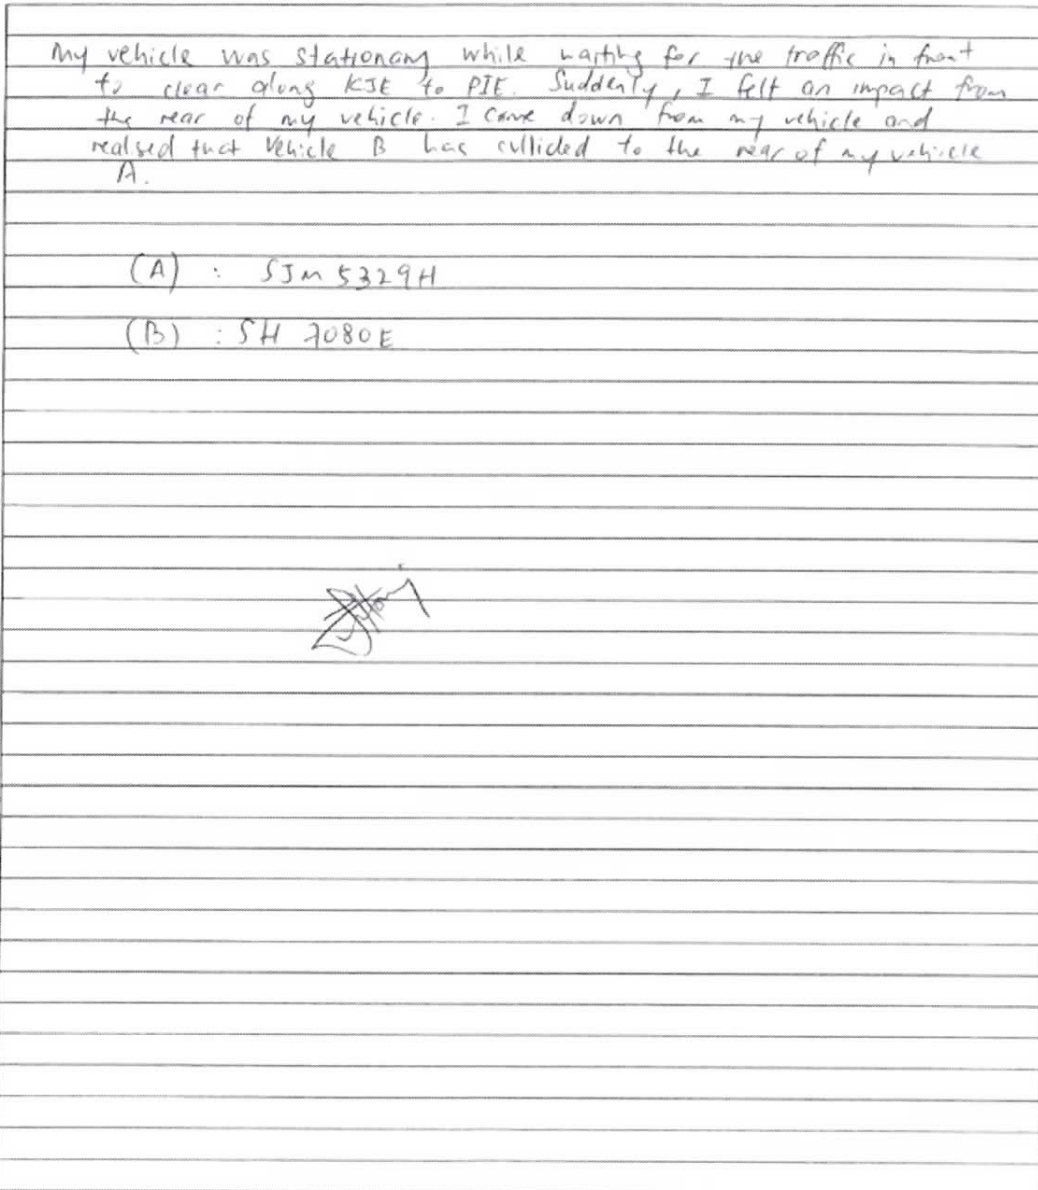 My vehicle was stationary while waiting for the traffic in front
to clear along KJE to PIE. Suddenly, I felt an impact from
the rear of my vehicle. I came down from my vehicle and
realsed that Vehicle B has collided to the rear of my vehicle
A.
(A) : SJM 5329H
(B) : SH 7080E